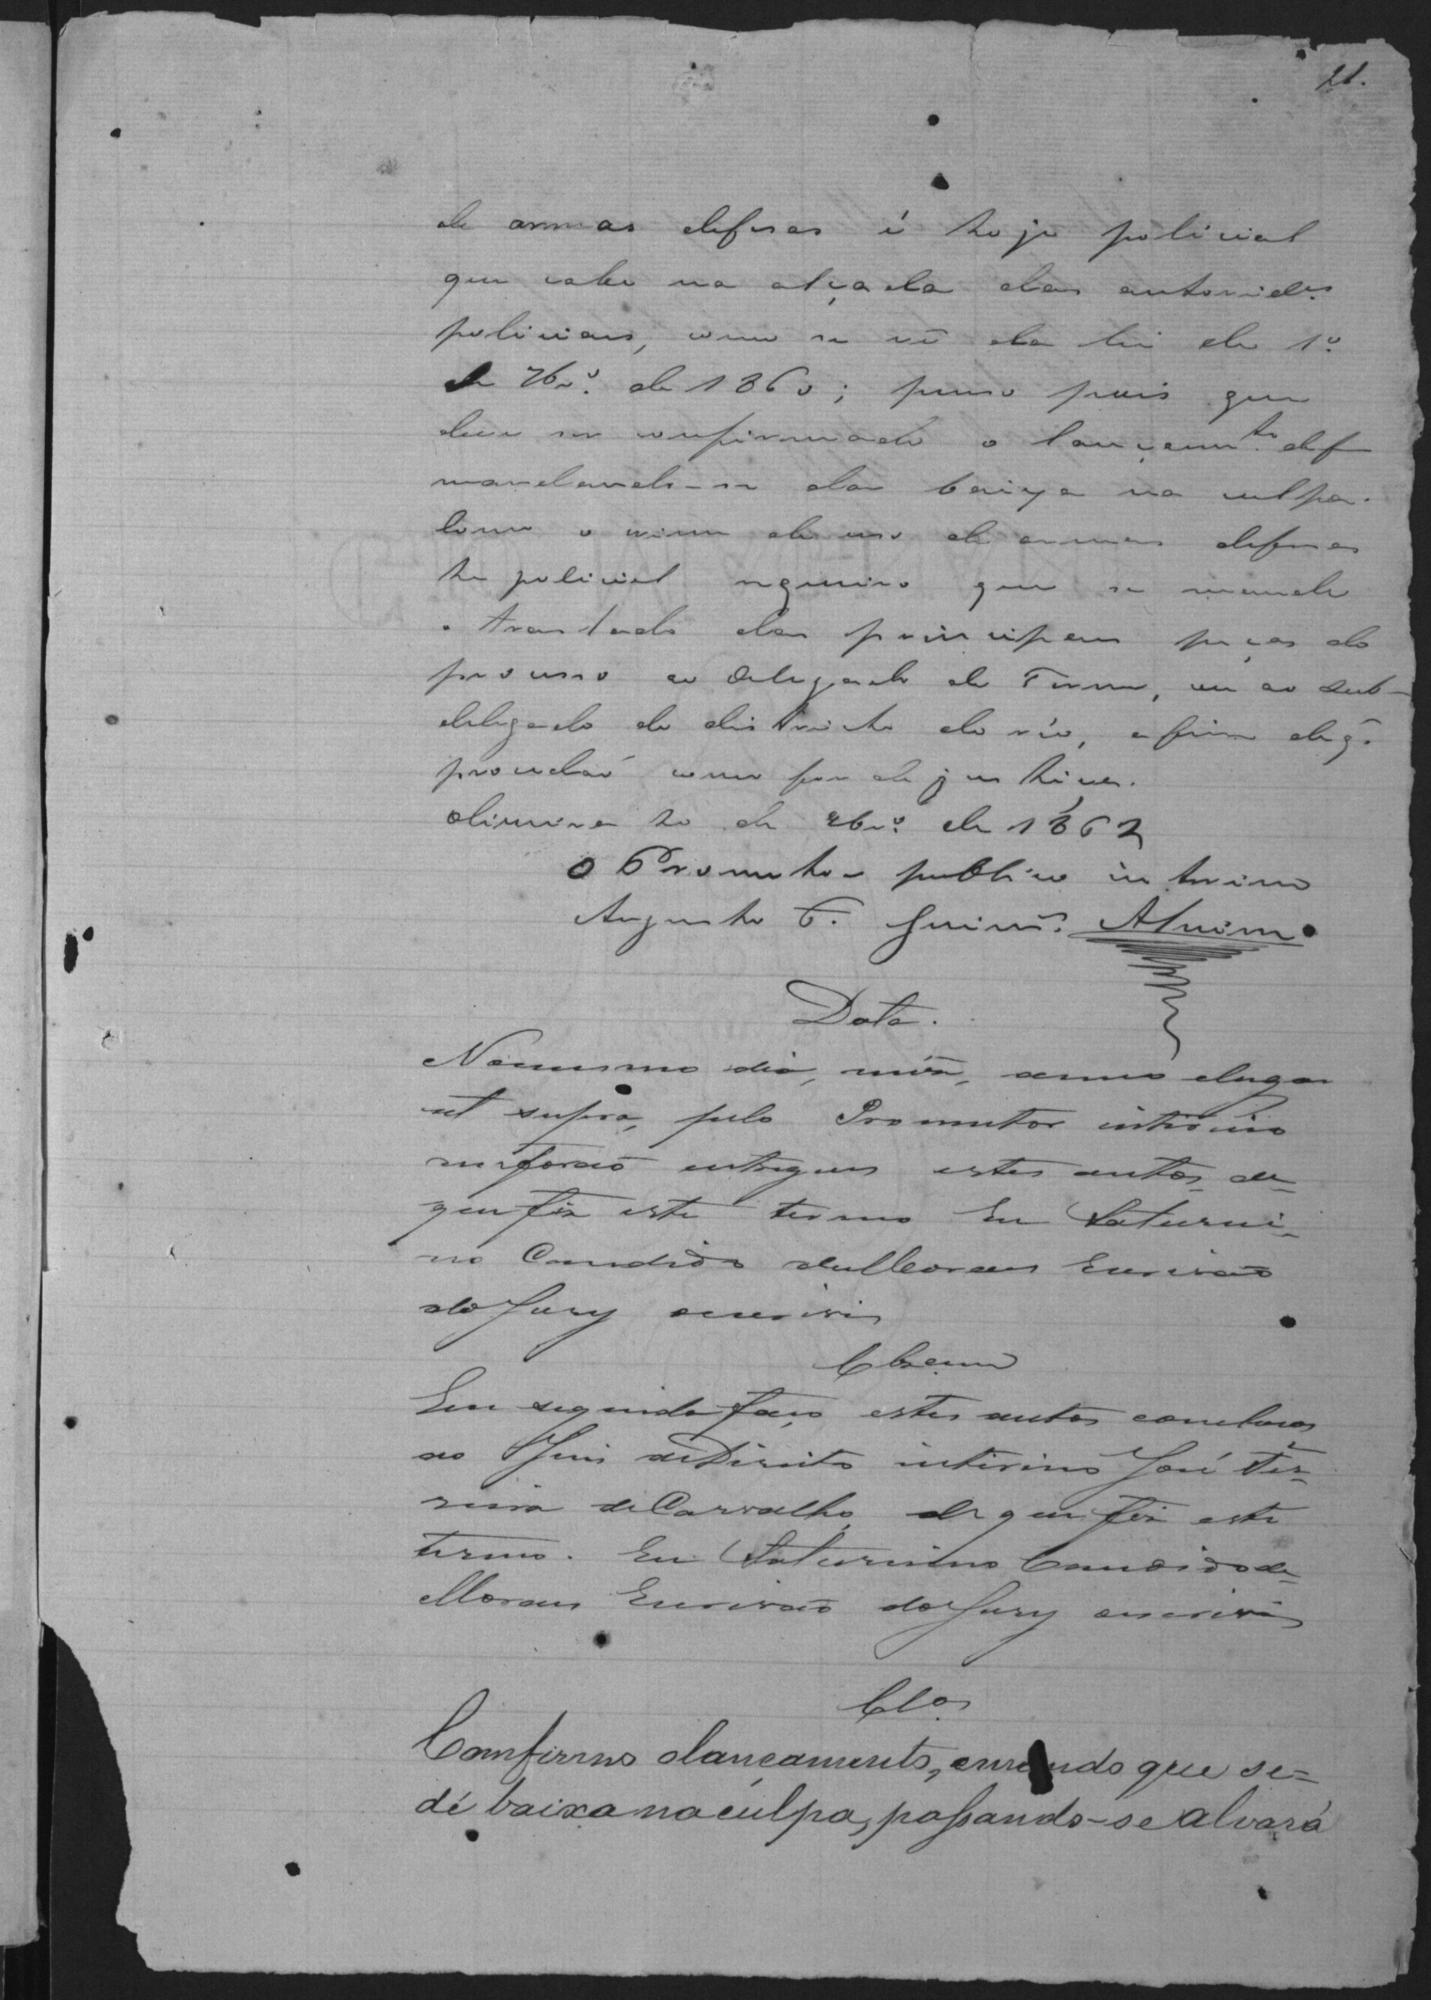 21.
de armas defesas é hoje policial
que cabe na alçada das autorid.es
policiaes, como se vê da lei de 1º
de 7br.º de 1860; penso pois que
deve ser confirmado o lançam.to de f
mandando-se dar baixa na culpa.
Como o crime de uso de armas defesas
he policial requeiro que se mande
o traslado das principaes peças do
processo ao Delegado do Termo, ou ao sub-
delegado do districto do réo, a fim de q.
procedaõ como for de justiça.
Oliveira 10 de 1862
O Promotor publico interino
Augusto C. Guim.es Alvim.
Data.
No mesmo dia, mês, anno elugar
ut supra, pelo Promutor interino
me foraõ entregues estes autos, de-
que fiz este termo Eu Saturni-
no Candido de Moraes Escrivaõ
do Jury escrevi
Clsam
Em seguida faço estes autos conclusos
ao Juis de Direito interino José Fer-
reira de Carvalho, de que fiz este
termo. Eu Saturnino Candido de
Moraes Escrivaõ do Jury escrevi
Clos
Comfirmo olançamento, emendo que se=
dê baixa na culpa, passando-se alvará